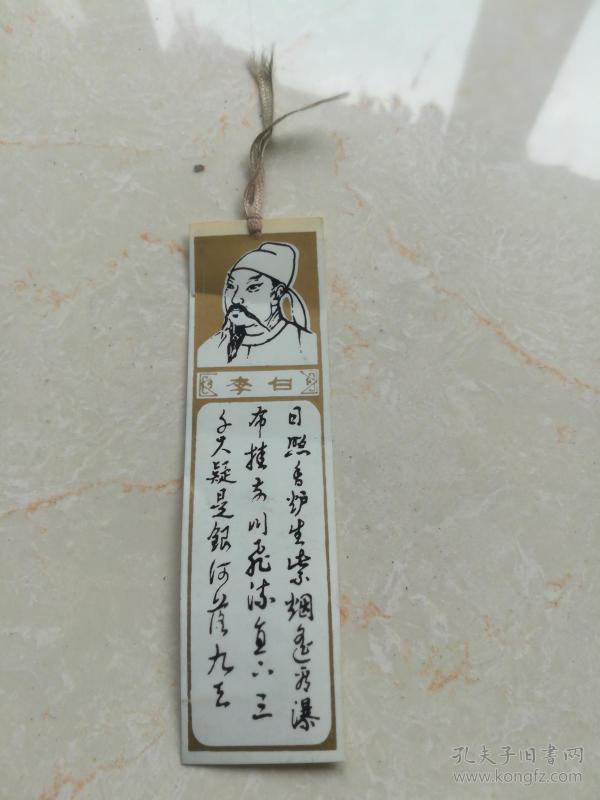 李白
日照香炉生紫烟遥看瀑
布挂前川飞流直下三
千尺疑是銀河落九天
孔夫子旧书网
www.kongfz.com